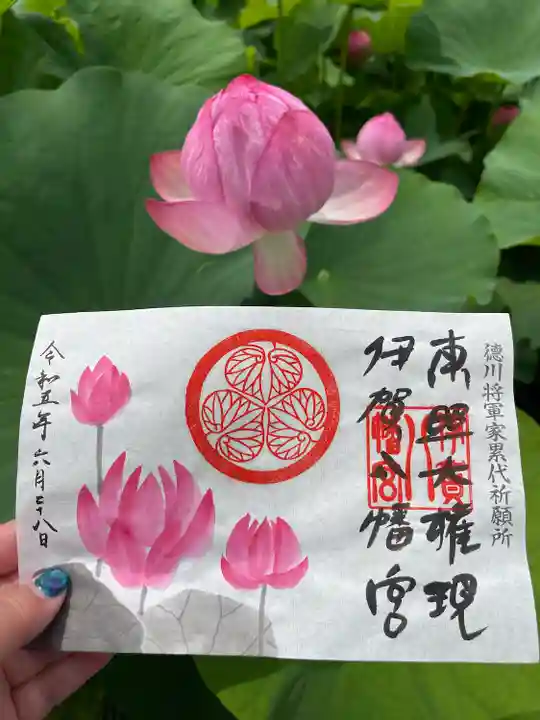 徳川将軍家累代祈願所
東照大権現
伊賀八幡宮
伊賀八幡宮
令和五年六月二十八日